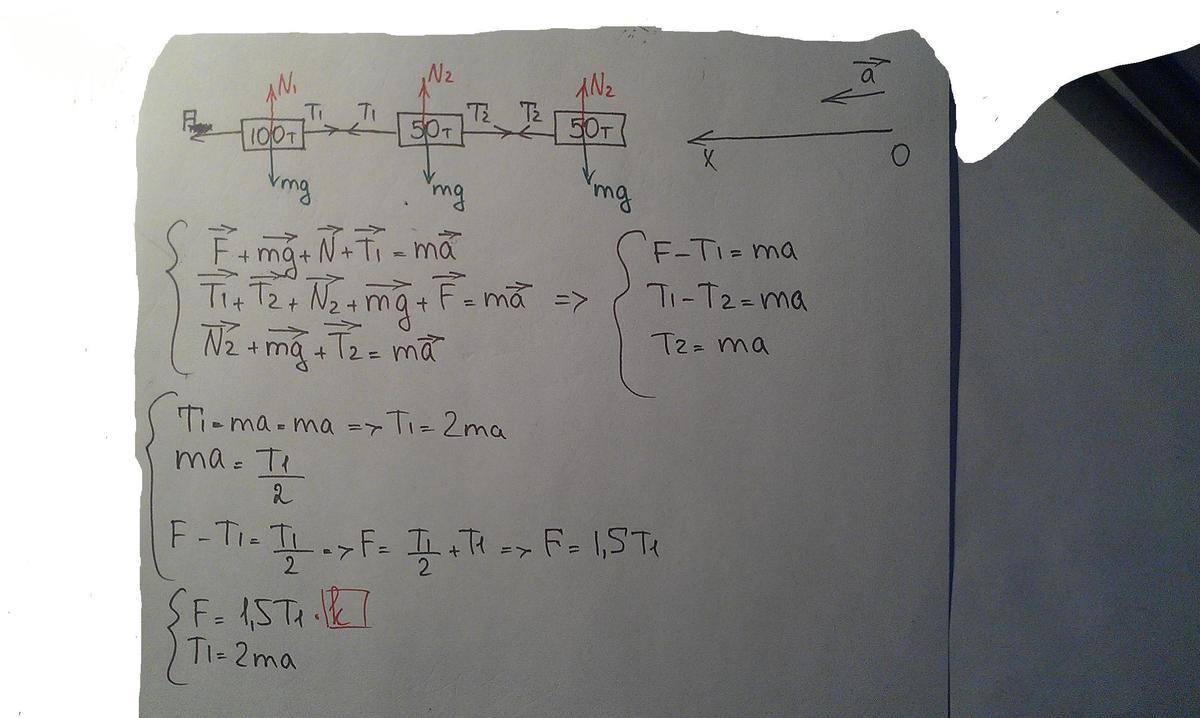 N₁ N₂ N₂ a⃗
T₁ T₁ T₂ T₂
100т 50т 50т
X O
mg mg mg
F⃗ + mg⃗ + N⃗ + T₁⃗ = ma⃗
T₁⃗ + T₂⃗ + N₂⃗ + mg⃗ + F⃗ = ma⃗ =>
N₂⃗ + mg⃗ + T₂⃗ = ma⃗
F - T₁ = ma
T₁ - T₂ = ma
T₂ = ma
T₁ - ma = ma => T₁ = 2ma
ma = T₁/2
F - T₁ = T₁/2 => F = T₁/2 + T₁ => F = 1,5T₁
F = 1,5T₁ · k
T₁ = 2ma